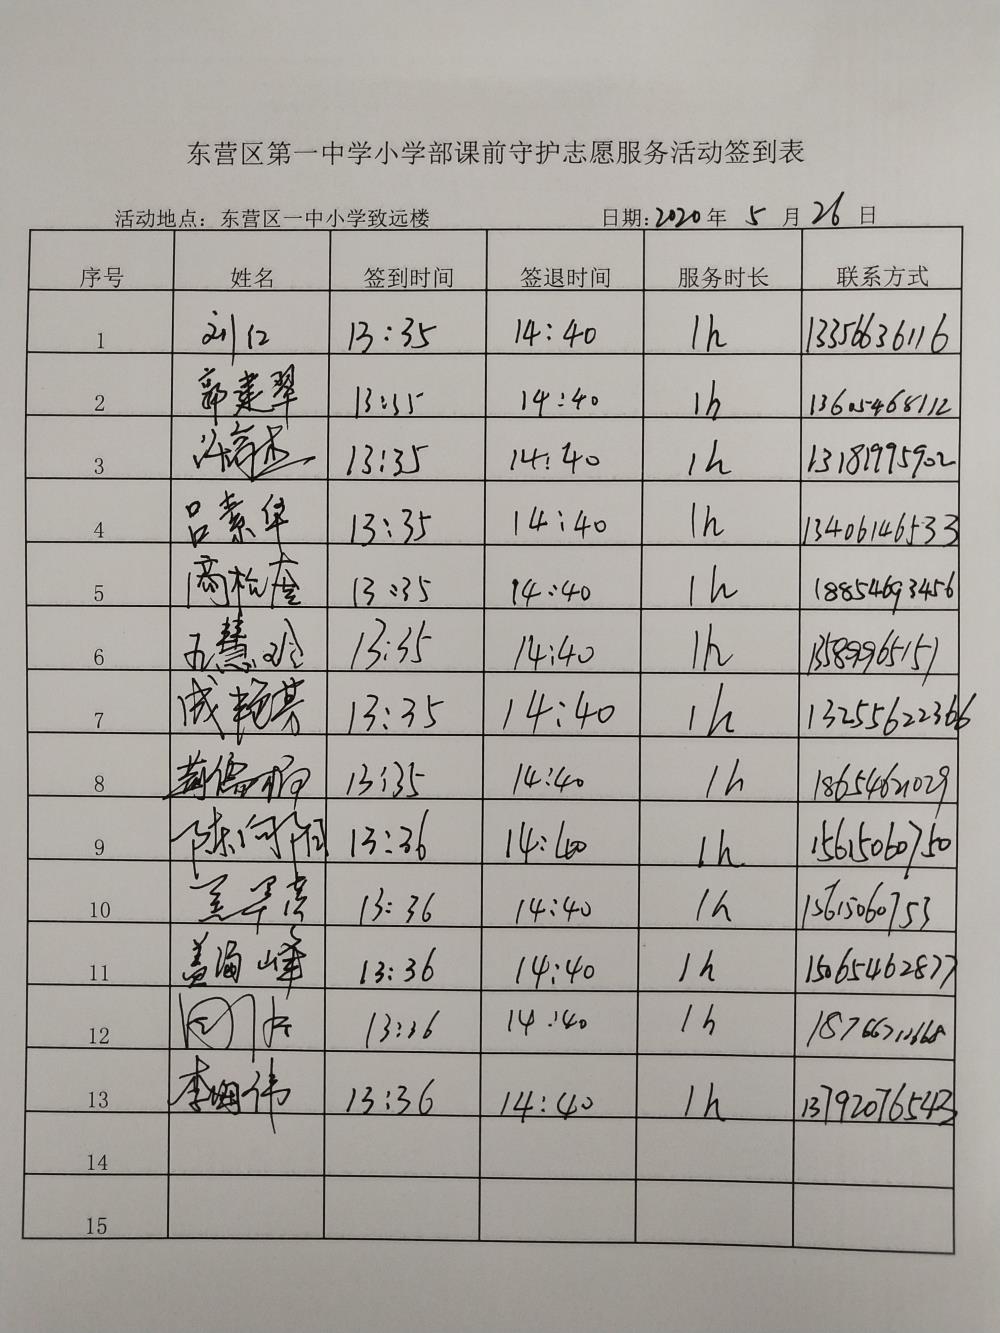 东营区第一中学小学部课前守护志愿服务活动签到表
活动地点：东营区一中小学致远楼 日期：2020年 5 月 26 日
序号 姓名 签到时间 签退时间 服务时长 联系方式
1 刘仁 13:35 14:40 1h 13356636116
2 郭建翠 13:35 14:40 1h 13605468112
3 13:35 14:40 1h 13181995902
4 吕素华 13:35 14:40 1h 13406146533
5 商松 13:35 14:40 1h 18854693456
6 慧玲 13:35 14:40 1h 13589965151
7 成艳芳 13:35 14:40 1h 13255622366
8 13:35 14:40 1h 18654621029
9 陈向阳 13:36 14:40 1h 15615060750
10 13:36 14:40 1h 15615060753
11 盖海峰 13:36 14:40 1h 15065462877
12 13:36 14:40 1h
13 李明伟 13:36 14:40 1h 13792076543
14
15